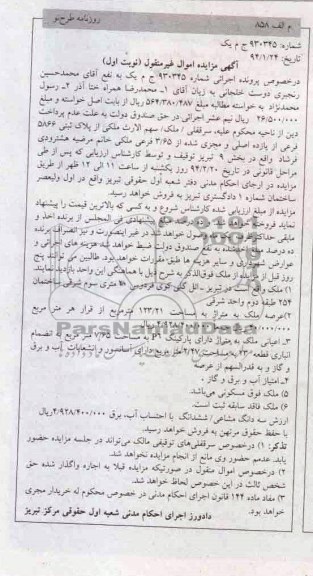 م الف ۸۵۸
روزنامه طرح نو
شماره: ۹۳۰۳۴۵ ج م یک
تاریخ: ۹۴/۱/۲۴
آگهی مزایده اموال غیرمنقول (نوبت اول)
درخصوص پرونده اجرائی شماره ۹۳۰۳۴۵ ج م یک به نفع آقای محمدحسین
رنجبری دوست خلجانی به زیان آقای ۱ـ محمدرضا همراه خثا آذر ۲ـ رسول
محمدنژاد به خواسته مطالبه مبلغ ۵۶۴/۳۸۰/۴۸۷ ریال از بابت اصل خواسته و مبلغ
۲۶/۵۰۰/۰۰۰ ریال نیم عشر اجرائی در حق صندوق دولت به علت عدم پرداخت
دین از ناحیه محکوم علیه، سرقفلی / ملک/ سهم الارث ملکی از پلاک ثبتی ۵۸۶۶
فرعی از یازده اصلی و مجزی شده از ۳/۶۵ فرعی ملکی خانم مرضیه هشترودی
فرشاد واقع در بخش ۹ تبریز توقیف و توسط کارشناس ارزیابی که پس از طی
مراحل قانونی در تاریخ ۹۴/۲/۲۰ روز یکشنبه از ساعت ۱۱ الی ۱۲ ظهر از طریق
مزایده در اجرای احکام مدنی دفتر شعبه اول حقوقی تبریز واقع در اول ولیعصر
ساختمان شماره ۱ دادگستری تبریز به فروش خواهد رسید.
مزایده از مبلغ ارزیابی شده کارشناس شروع و به کسی که بالاترین قیمت را پیشنهاد
نماید فروخته
فی المجلس از برنده اخذ و
خواهد شد در غیر اینصورت و نیز انصراف برنده
ده درصد
به نفع صندوق دولت ضبط خواهد شد هزینه های اجرائی و
عوارض شهرداری و سایر هزینه ها طبق مقررات خواهد بود. طالبین می توانند پنج
روز قبل از مزایده از ملک فوق الذکر به شرح ذیل با هماهنگی این واحد بازدید نمایند.
۱) ملک واقع است در تبریز ـ ائل گلی کوی فردوس
متری سوم شرقی ساختمان
۲۵۴ طبقه دوم واحد شرقی
۲)عرصه ملک به متراژ به مساحت ۱۲۳/۲۱ مترمربع از قرار هر متر مربع
۳ـ اعیانی ملک به متراژ دارای پارکینگ
به مساحت
متر مربع به انضمام
انباری قطعه
به مساحت ۲/۴۷ متر مربع دارای آسانسور و انشعابات آب و برق
و گاز و به قدرالسهم از عرصه
۴ـ امتیاز آب و برق و گاز .
۵) ملک فوق مسکونی می‌باشد.
۶) ملک فاقد سابقه ثبت است.
ارزش سه دانگ مشاعی/ ششدانگ با احتساب آب، برق ۴/۹۲۸/۴۰۰/۰۰۰ریال
با حفظ حقوق مرتهن به فروش خواهد رسید.
تذکر: ۱) درخصوص سرقفلی‌های توقیفی مالک می‌تواند در جلسه مزایده حضور
یابد. عدم حضور وی مانع از انجام مزایده نخواهد شد.
۲) درخصوص اموال منقول در صورتیکه مزایده قبلا به اجاره واگذار شده حق
شخص ثالث در این خصوص لحاظ خواهد شد.
۳) مفاد ماده ۱۴۴ قانون اجرای احکام مدنی در خصوص محکوم له خریدار مجری
خواهد بود.
دادورز اجرای احکام مدنی شعبه اول حقوقی مرکز تبریز
ParsNamadData